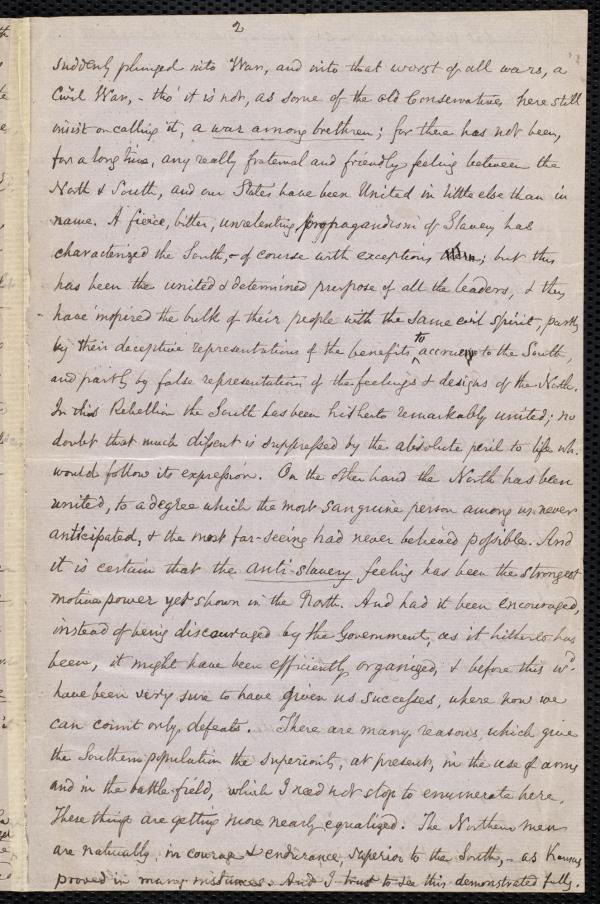 2
suddenly plunged into War, and into that worst of all wars, a
Civil War, - tho' it is not, as some of the old Conservatives here still
insist on calling it, a war among brethren; for there has not been,
for a long time, any really fraternal and friendly feeling between the
North & South, and our States have been United in little else than in
name. A fierce, bitter, unrelenting propagandism of Slavery has
characterized the South, - of course with exceptions; but this
has been the united & determined purpose of all the leaders, & they
have inspired the bulk of their people with the same evil spirit, partly
by their deceptive representations of the benefits to accrue to the South,
and partly by false representations of the feelings & designs of the North.
In this Rebellion the South has been hitherto remarkably united; no
doubt that much dissent is suppressed by the absolute peril to life wh.
would follow its expression. On the other hand the North has been
united, to a degree which the most sanguine person among us never
anticipated, & the most far-seeing had never believed possible. And
it is certain that the anti-slavery feeling has been the strongest
motive power yet shown in the North. And had it been encouraged,
instead of being discouraged by the Government, as it hitherto has
been, it might have been efficiently organized, & before this wd.
have been very sure to have given us successes, where now we
can count only defeats. There are many reasons, which give
the Southern population the superiority, at present, in the use of arms
and in the battle-field, which I need not stop to enumerate here.
These things are getting more nearly equalized. The Northern men
are naturally, in courage & endurance, superior to the South, - as Kansas
proved in many instances. And I trust to see this demonstrated fully.